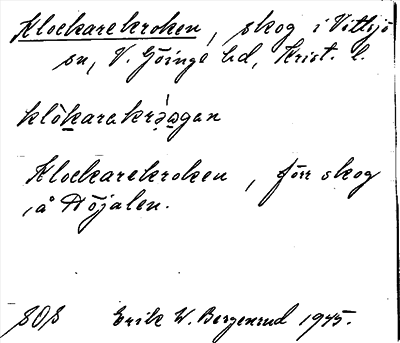 Klockarekroken, skog i Vittsjö
sn, V. Göinge hd, Krist. l.
klòkarekrə́agan
Klockarekroken, förr skog
i å Döjalen.
808 Erik W. Bergenrud 1945.